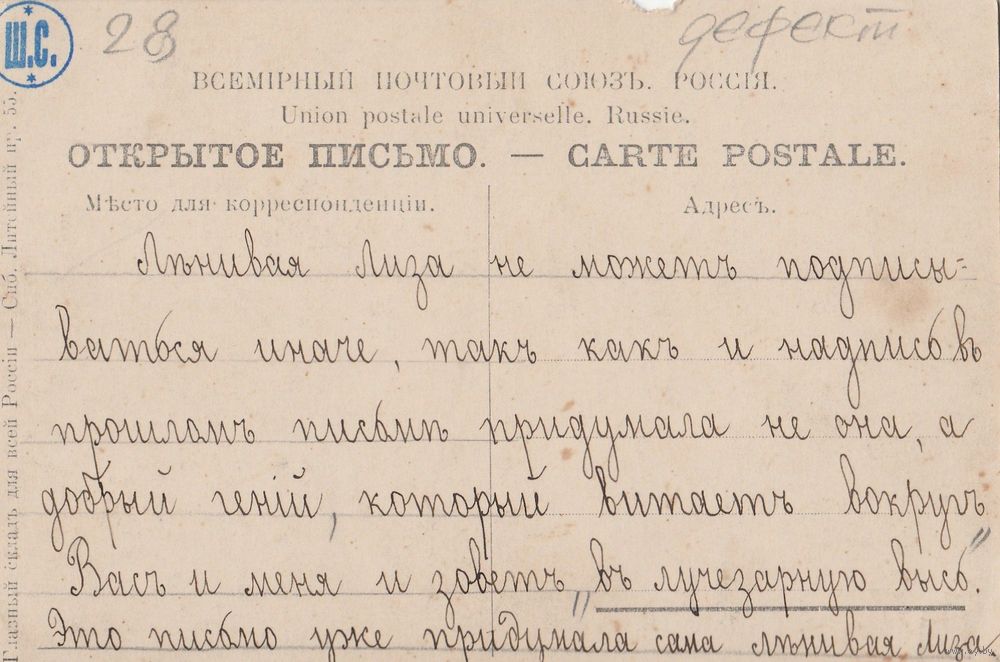 Ш.С.
28
дефект
ВСЕМІРНЫЙ ПОЧТОВЫЙ СОЮЗЪ. РОССІЯ.
Union postale universelle. Russie.
ОТКРЫТОЕ ПИСЬМО. — CARTE POSTALE.
Мѣсто для корреспонденціи.
Адресъ.
Лѣнивая Лиза не можетъ подписы=
ваться иначе, такъ какъ и надпись въ
прошломъ письмѣ придумала не она, а
добрый геній, который витаетъ вокругъ
Васъ и меня и зоветъ „въ лучезарную высь".
Это письмо уже придумала сама лѣнивая Лиза
Главный складъ для всей Россіи — Спб. Литейный пр. 55.